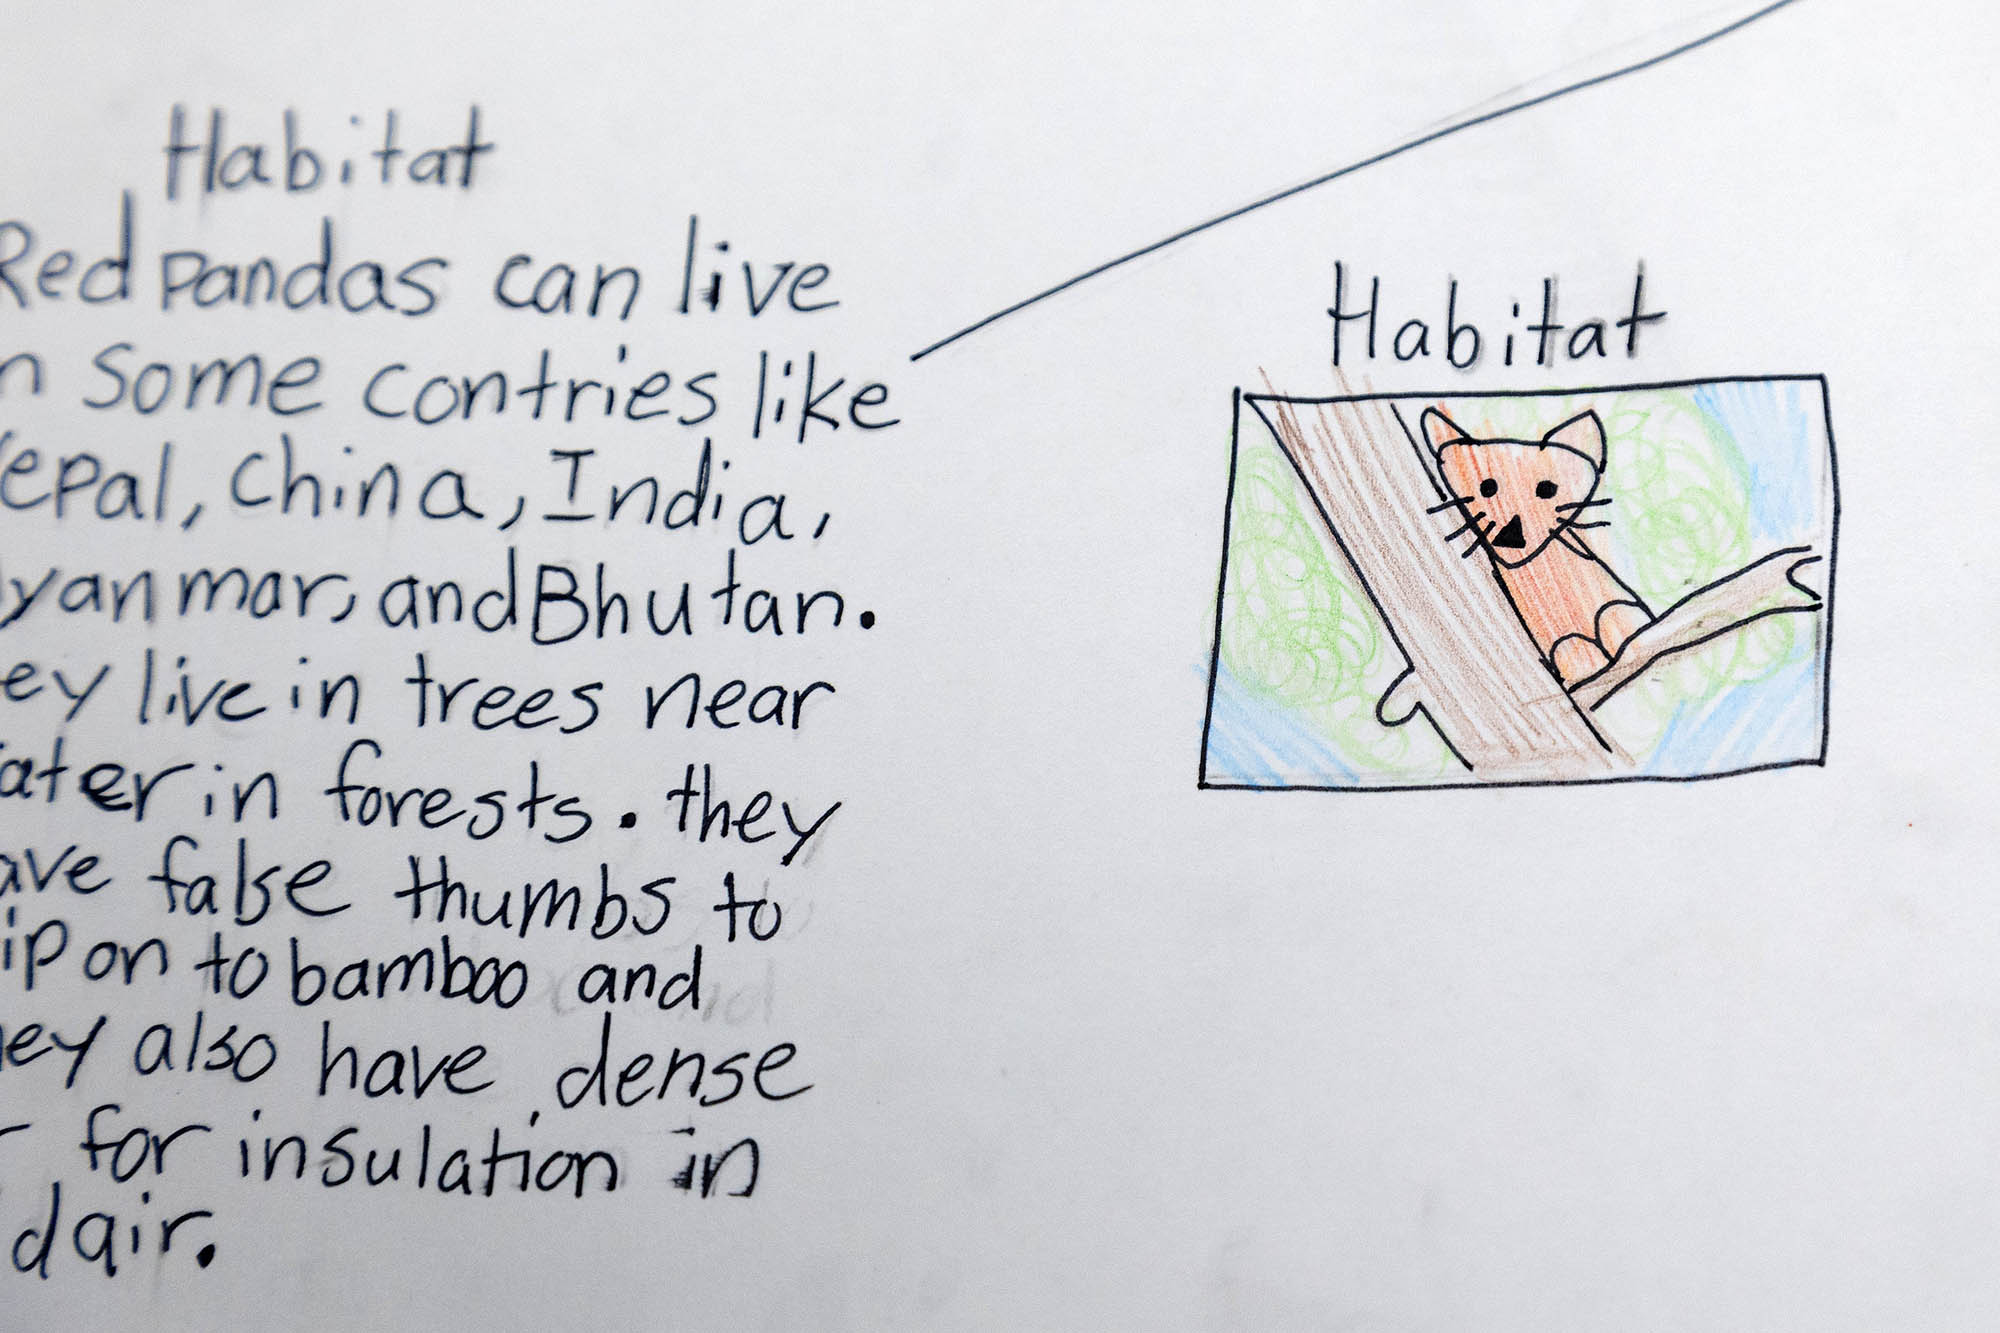 Habitat
Red pandas can live
n some contries like
epal, china, India,
yanmar, and Bhutan.
ey live in trees near
ater in forests. they
ave false thumbs to
ip on to bamboo and
ey also have dense
for insulation in
d air.
Habitat